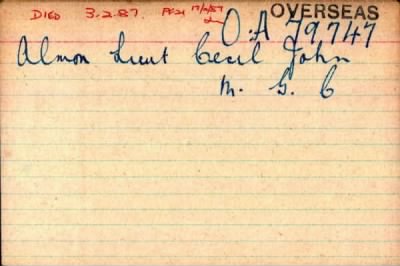 DIED 3.2.87. PF21 17/2/87 OVERSEAS
O.A 79747
Almon Lieut Cecil John
M. G. C